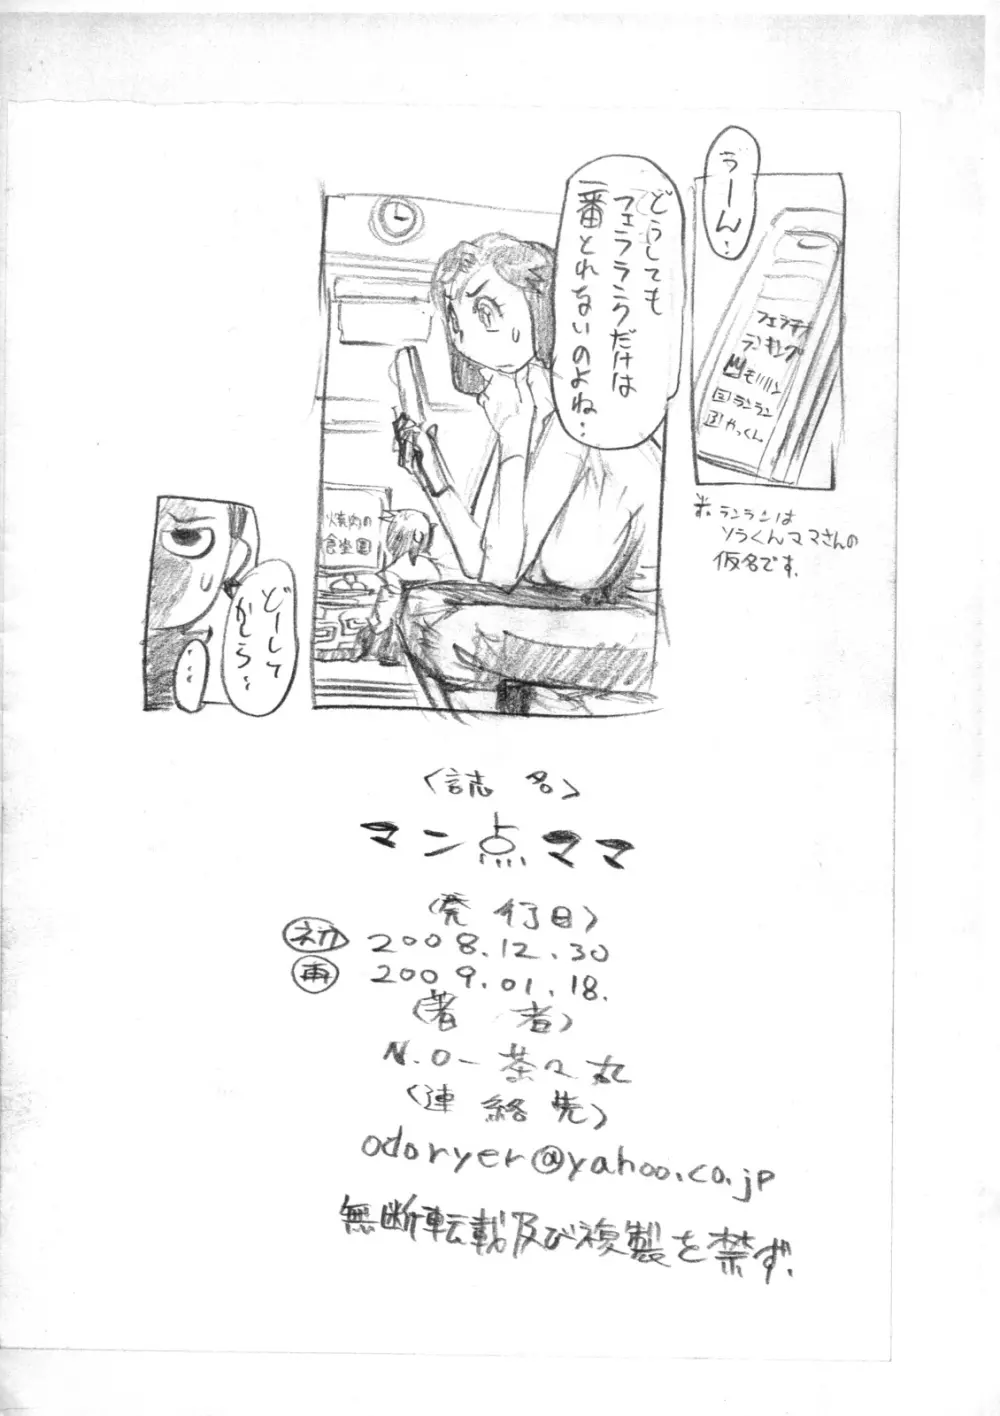 うーん‥
フェラチオ
ランキング
モリリン
2 ランラン
3 やっくん
※ランランは
ソラくんママさんの
仮名です.
どうしても
フェラランクだけは
一番とれないのよね‥
焼肉の
食坐園
どーして
かしら‥
‥‥
〈誌名〉
マン点ママ
〈発行日〉
初 2008.12.30
再 2009.01.18.
〈著者〉
N.O-茶々丸
〈連絡先〉
odoryer@yahoo.co.jp
無断転載及び複製を禁ず.